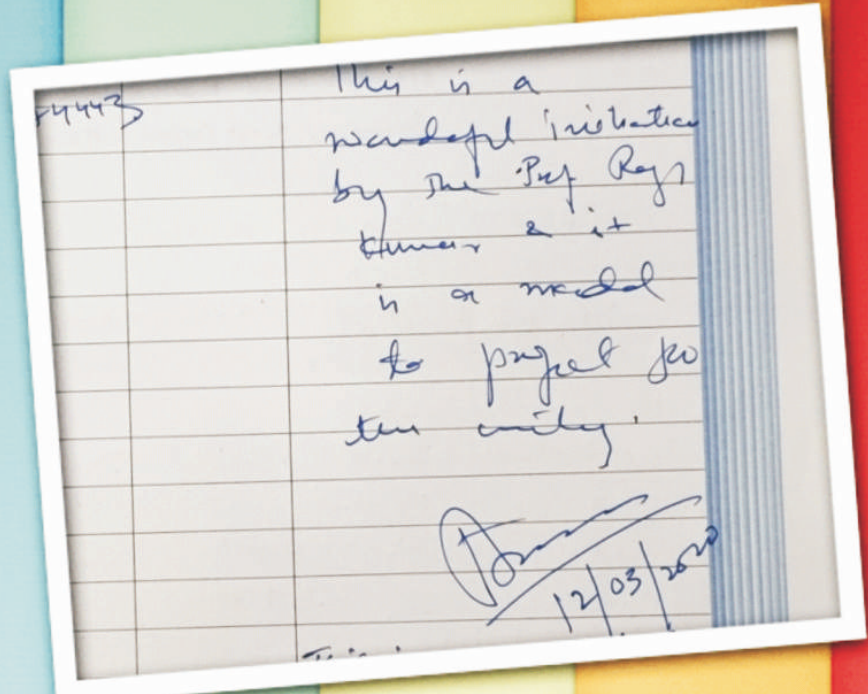 -4443
This is a
wonderful initiative
by the Prof Raj
Kumar & it
is a model
to project for
the unity.
12/03/2020
This is